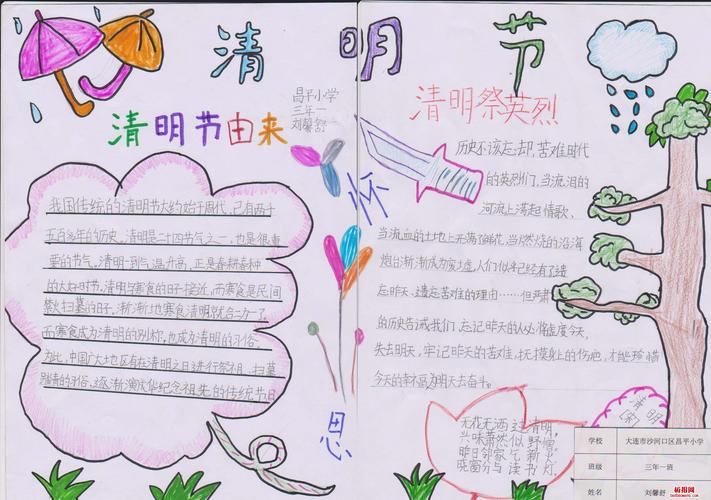 清明节
昌平小学
三年一
刘馨舒
清明节由来
我国传统的清明节大约始于周代,已有两千
五百多年的历史。清明是二十四节气之一,也是很重
要的节气。清明一到气温升高,正是春耕春种
的大好时节。清明与寒食的日子接近,而寒食是民间
禁火扫墓的日子,渐渐地寒食清明就合二为一了。
而寒食成为清明的别称,也成为清明的习俗。
为此,中国广大地区有在清明之日进行祭祖、扫墓、
踏青的习俗,逐渐演变华纪念祖先的传统节日
怀
思
清明祭英烈
历史不该忘却,苦难时代
的英烈们,当流泪的
河流上荡起情歌,
当流血的土地上开满了鲜花,当燃烧的沿海
炮台渐渐成为废墟,人们似乎已经有了遗
忘昨天、遗忘苦难的理由……但严肃
的历史告诫我们,忘记昨天的人必将虚度今天,
失去明天,牢记昨天的苦难,抚摸身上的伤疤,才能珍惜
今天的幸福,为明天去奋斗。
清明
[宋]
无花无酒过清明,
兴味萧然似野僧。
昨日邻家乞新火,
晓窗分与读书灯。
学校 大连市沙河口区昌平小学
班级 三年一班
姓名 刘馨舒